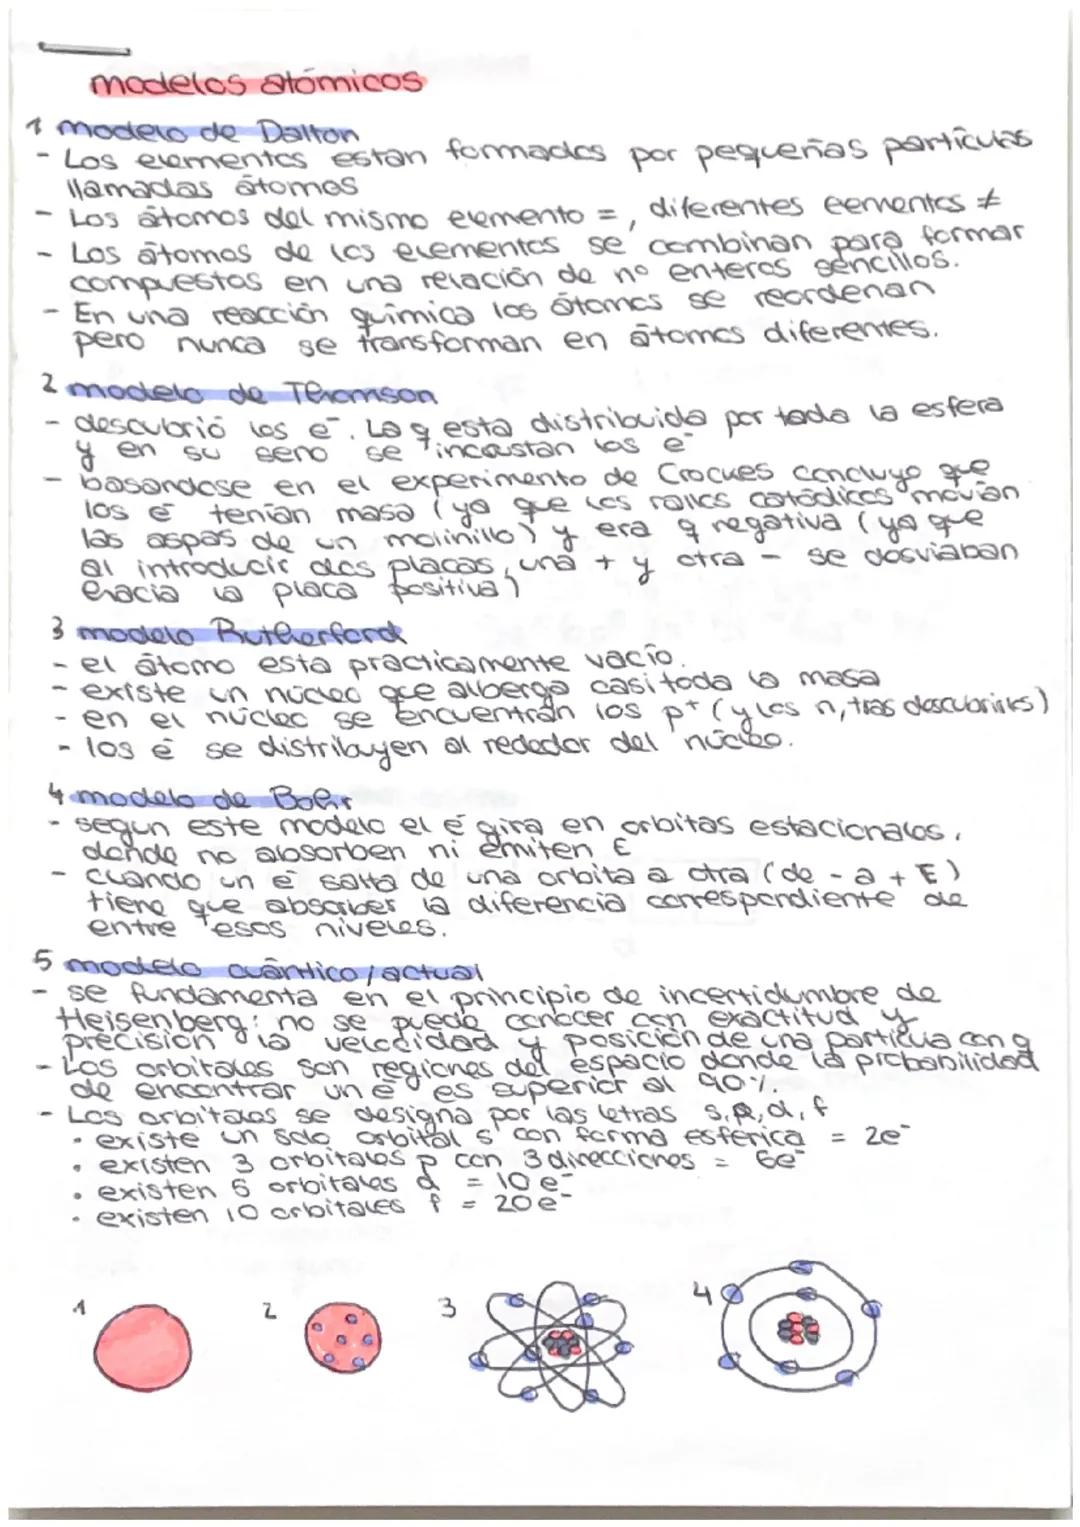 modelos atómicos
1 modelo de Dalton
- Los elementos estan formados por pequeñas partículas
llamadas átomos
- Los átomos del mismo elemento =, diferentes eementos ≠
- Los átomos de los elementos se combinan para formar
compuestos en una relación de nº enteros sencillos.
- En una reacción química los átomos se reordenan
pero nunca se transforman en átomos diferentes.
2 modelo de Thomson
- descubrió los e⁻. La q esta distribuida por toda la esfera
y en su seno se incrustan los e⁻
- basandose en el experimento de Crocues concluyo que
los e⁻ tenían masa (ya que los rallos catódicos movían
las aspas de un molinillo) y era q negativa (ya que
al introducir dos placas, una + y otra - se desviaban
hacia la placa positiva)
3 modelo Rutherford
- el átomo esta practicamente vacío.
- existe un núcleo que alberga casi toda la masa
- en el núcleo se encuentran los p⁺ (y los n, tras descubrirlos)
- los e⁻ se distribuyen al rededor del núcleo.
4 modelo de Bohr
- segun este modelo el e⁻ gira en orbitas estacionales,
donde no absorben ni emiten E
- cuando un e⁻ salta de una orbita a otra (de - a + E)
tiene que absorber la diferencia correspondiente de
entre esos niveles.
5 modelo cuántico/actual
- se fundamenta en el principio de incertidumbre de
Heisenberg: no se puede conocer con exactitud y
precisión la velocidad y posición de una partícula con q
- Los orbitales son regiones del espacio donde la probabilidad
de encontrar un e⁻ es superior al 90%.
- Los orbitales se designa por las letras s, p, d, f
• existe un solo orbital s con forma esférica = 2e⁻
• existen 3 orbitales p con 3 direcciones = 6e⁻
• existen 5 orbitales d = 10 e⁻
• existen 10 orbitales f = 20e⁻
1 2 3 4